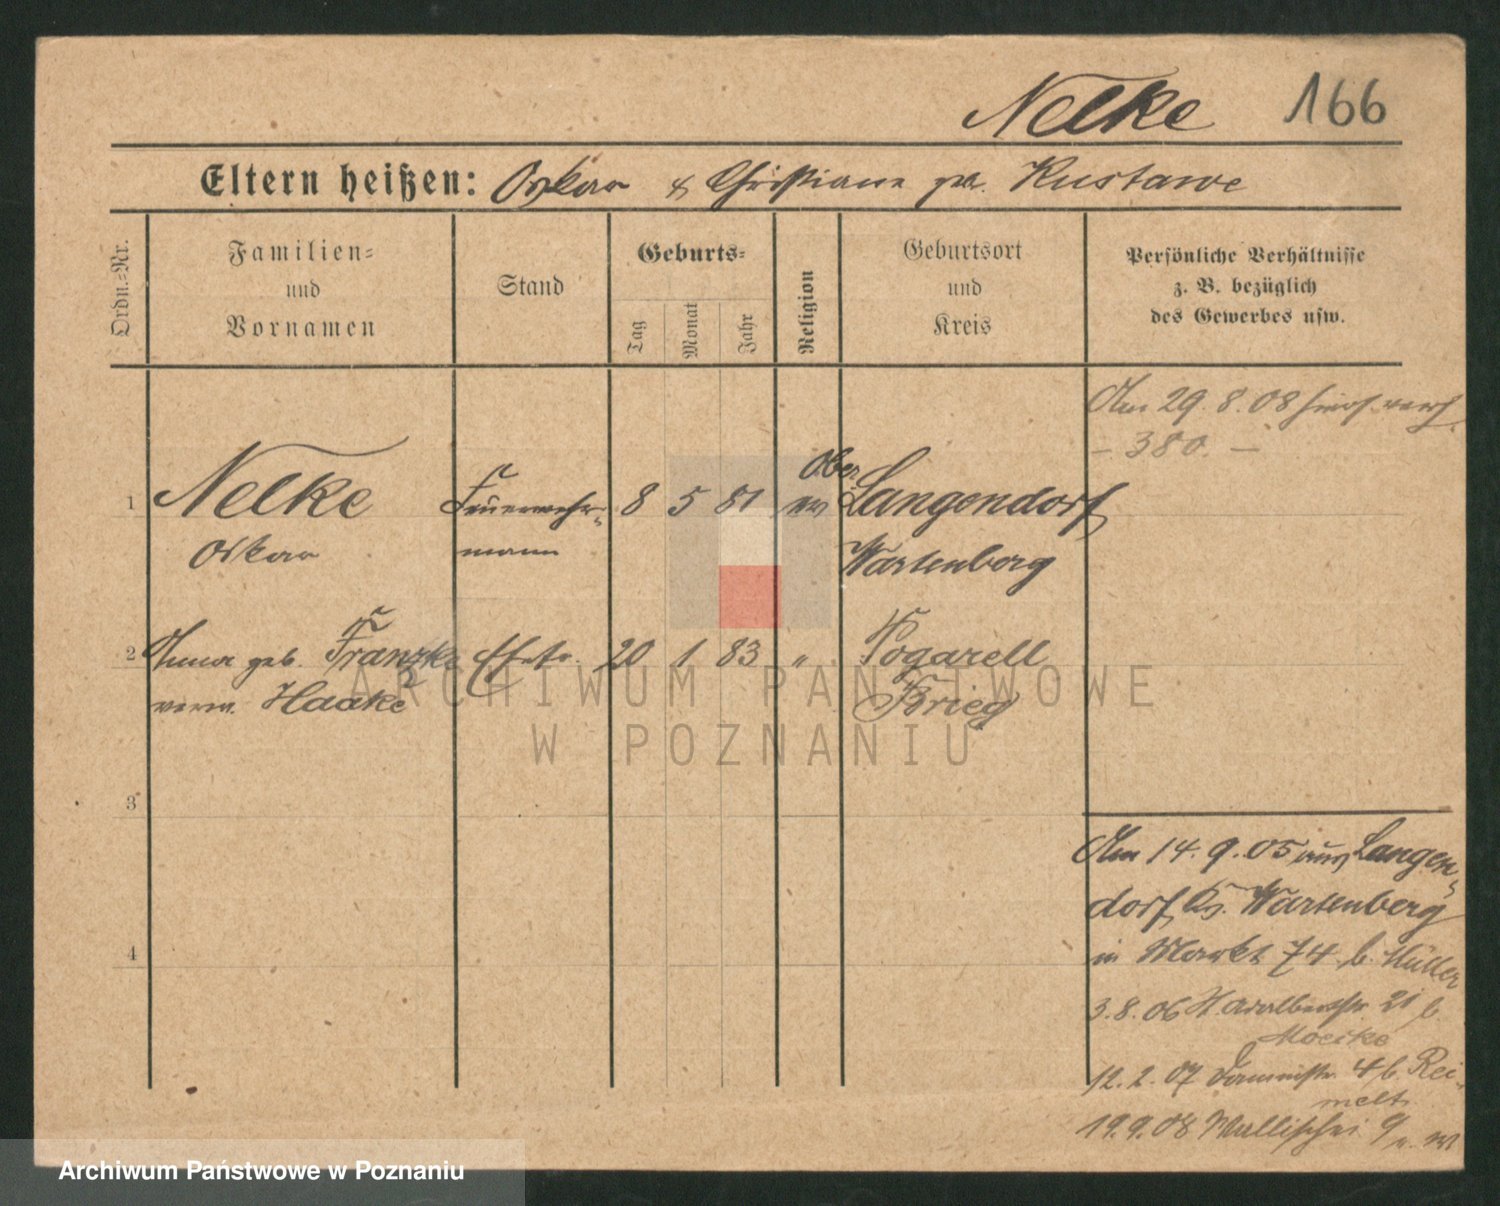 Nelke 166
Eltern heißen: Oskar & Christiane geb. Kustawe
Ordn.-Nr.
Familien-
und
Vornamen
Stand
Geburts-
Tag
Monat
Jahr
Religion
Geburtsort
und
Kreis
Persönliche Verhältnisse
z. B. bezüglich
des Gewerbes usw.
Am 29. 8. 08 hier
– 380. –
1 Nelke Feuerwehr- 8 5 81 ev Ober Langendorf
Oskar mann Wartenberg
2 Anna geb. Franzke Ehefr. 20 1 83 " Pogarell
verw. Haake Brieg
3
4
Am 14. 9. 05 aus Langen-
dorf, Kr. Wartenberg
in Markt 74 b. Müller
3. 8. 06 St. Adalbertstr. 21 b.
12. 2. 07 Dominstr. 4 b. Rei-
melt
19. 9. 08 Wallischei 9
ARCHIWUM PAŃSTWOWE
W POZNANIU
Archiwum Państwowe w Poznaniu